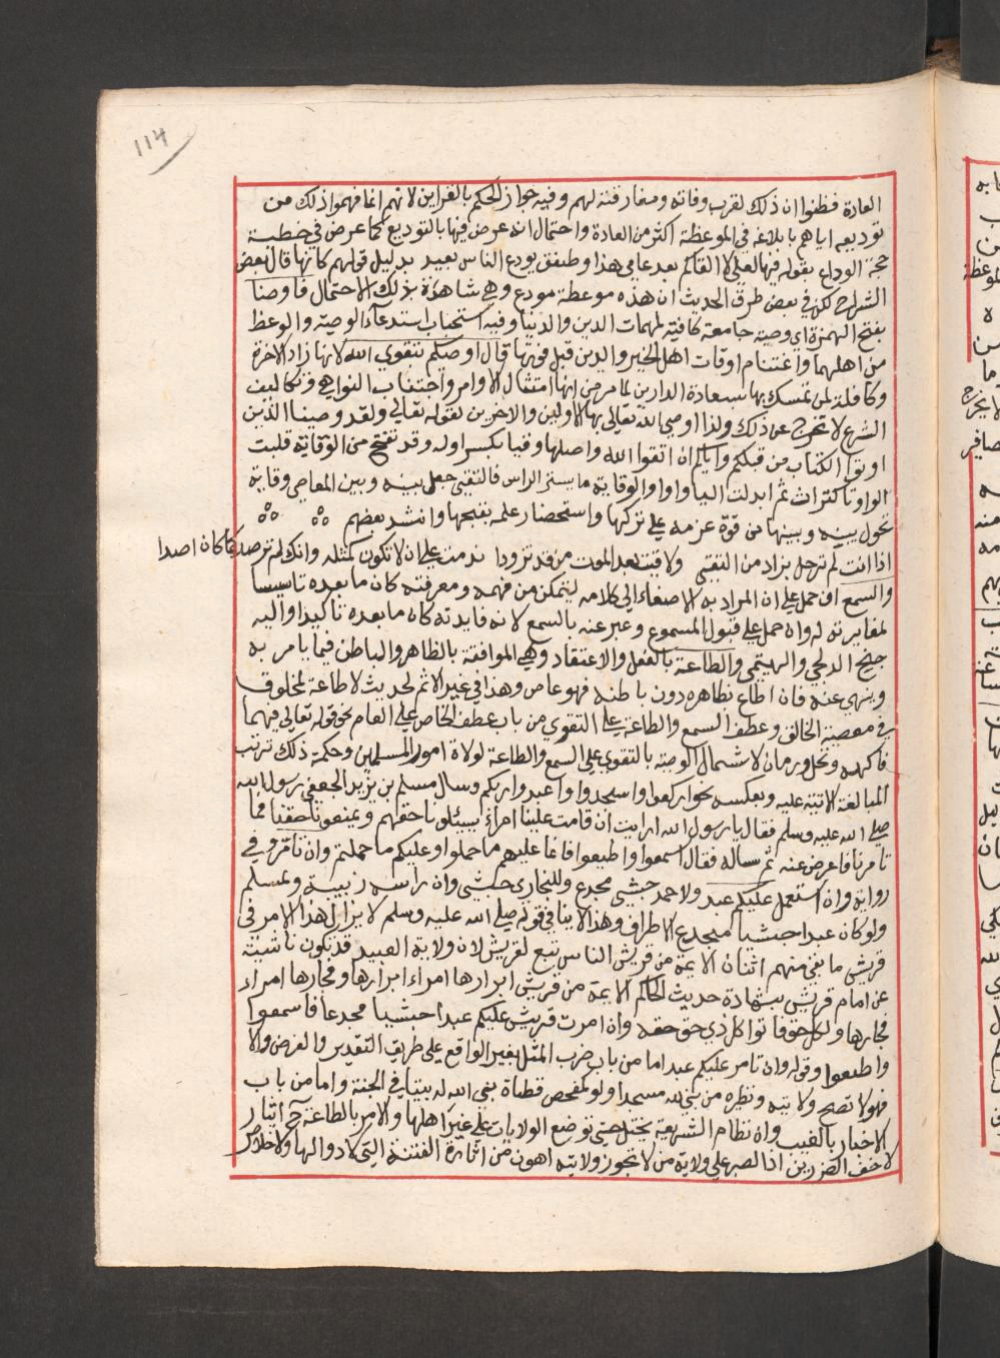 ١١٤
العادة فظنوا ان ذلك لقرب وفاته ومفارقته لهم وفيه جواز الحكم بالقراين لانهم انما فهموا ذلك من
توديعه اياهم بابلاغه في الموعظة اكثر من العادة واحتمال انه عرض فيها بالتوديع كما عرض في خطبة
حجة الوداع بقوله فيها لعلي لا القاكم بعد عامي هذا وطفق يودع الناس بعيد بدليل قولهم كانها قال بعض
الشراح لكن في بعض طرق الحديث ان هذه موعظة مودع وهي شاهدة بذلك الاحتمال فاوصنا
بفتح الهمزة اي وصية جامعة كافية لمهمات الدين والدنيا وفيه استحباب استدعاء الوصية والوعظ
من اهلهما واغتنام اوقات اهل الخير والدين قبل فوتها قال اوصيكم بتقوي الله لانها زاد الاخرة
وكافلة لمن تمسك بها بسعادة الدارين لما مر من انها امتثال الاوامر واجتناب النواهي وتكاليف
الشرع لا تخرج عن ذلك ولذا اوصي الله تعالي بها الاولين والاخرين لقوله تعالي ولقد وصينا الذين
اوتوا الكتاب من قبلكم واياكم ان اتقوا الله واصلها وقيا بكسر اوله وقد تفتح من الوقاية قلبت
الواو تا كتراث ثم ابدلت اليا واوا والوقاية ما يستر الراس فالتقي جعل بينه وبين المعاصي وقاية
تحول بينه وبينها من قوة عزمه علي تركها واستحضار علمه بقبحها وانشد بعضهم
اذا انت لم ترحل بزاد من التقي ولاقيت بعد الموت من قد تزودا ندمت علي ان لا تكون كمثله وانك لم ترصد كما كان ارصدا
والسمع ان حمل علي ان المراد به الاصغاء الي كلامه ليتمكن من فهمه ومعرفته كان ما بعده تاسيسا
لمغايرته له وان حمل علي قبول المسموع وعبر عنه بالسمع لانه فايدته كان ما بعده تاكيدا واليه
جنح الدلجي والهيتمي والطاعة بالفعل والاعتقاد وهي الموافقة بالظاهر والباطن فيما يامر به
وينهي عنه فان اطاع بظاهره دون باطنه فهو عاص وهذا في غير الاثم لحديث لا طاعة لمخلوق
في معصية الخالق وعطف السمع والطاعة علي التقوي من باب عطف الخاص علي العام نحو قوله تعالي فيهما
فاكهة ونخل ورمان لاشتمال الوصية بالتقوي علي السمع والطاعة لولاة امور المسلمين وحكمة ذلك ترتب
المبالغة الاتية عليه وبعكسه نحو اركعوا واسجدوا واعبدوا ربكم وسال مسلم بن يزيد الجعفي رسول الله
صلي الله عليه وسلم فقال يا رسول الله ارايت ان قامت علينا امراء يسئلونا حقهم ويمنعونا حقنا فما
تامرنا فاعرض عنه ثم ساله فقال اسمعوا واطيعوا فانما عليهم ما حملوا وعليكم ما حملتم وان تامر وفي
رواية وان استعمل عليكم عبد ولاحمد حبشي مجدع وللبخاري حبشي وان راسه زبيبة ولمسلم
ولو كان عبدا حبشيا مجدع الاطراف وهذا لا ينافي قوله صلي الله عليه وسلم لا يزال هذا الامر في
قريش ما بقي منهم اثنان الايمة من قريش الناس تبع لقريش لان ولاية العبيد قد تكون ناشية
عن امام قريش بشهادة حديث الحاكم الايمة من قريش ابرارها امراء ابرارها وفجارها امراء
فجارها ولكل حق فاتوا كل ذي حق حقه وان امرت قريش عليكم عبدا حبشيا مجدعا فاسمعوا
واطيعوا وقوله وان تامر عليكم عبد اما من باب ضرب المثل بغير الواقع علي طريق التقدير والفرض والا
فهو لا تصح ولايته ونظيره من بني لله مسجدا ولو كمفحص قطاة بني الله له بيتا في الجنة واما من باب
الاخبار بالغيب وان نظام الشريعة يختل حتي توضع الولايات علي غير اهلها والامر بالطاعة ح ايثار
لاخف الضررين اذ الصبر علي ولاية من لا تجوز ولايته اهون من اثارة الفتنة التي لا دوا لها ولا خلاص